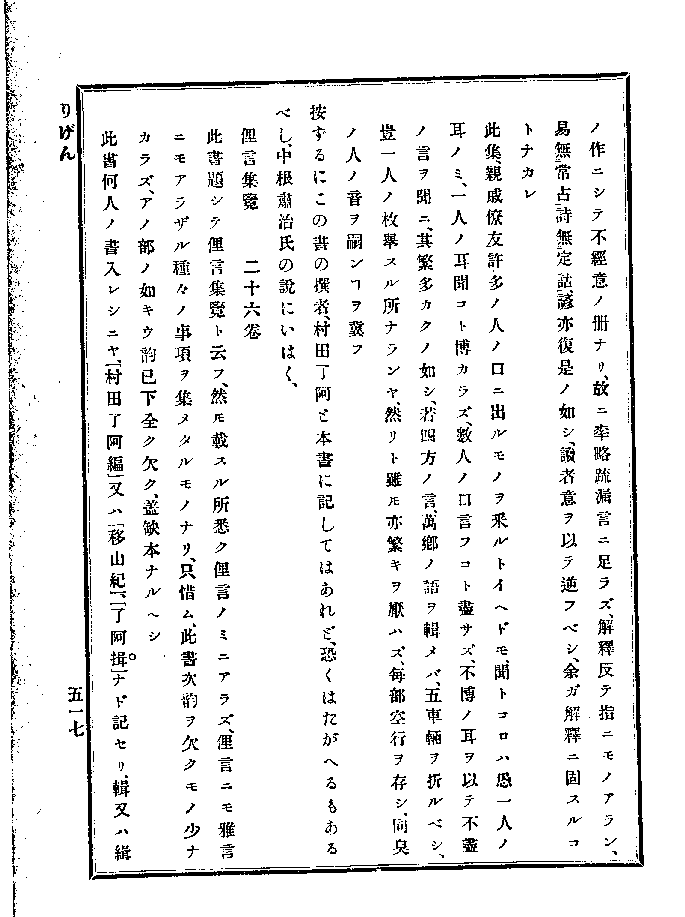 ノ作ニシテ不經意ノ册ナリ、故ニ率略疏漏言ニ足ラズ、解釋反テ指ニモノアラン、
易無常占詩無定詁、諺亦復是ノ如シ、讀者意ヲ以テ逆フベシ、余ガ解釋ニ固スルコ
トナカレ
此集、親戚僚友許多ノ人ノ口ニ出ルモノヲ采ルトイヘドモ、聞トコロハ愚一人ノ
耳ノミ、一人ノ耳聞コト博カラズ、數人ノ口言フコト盡サズ、不博ノ耳ヲ以テ不盡
ノ言ヲ聞ニ、其繁多カクノ如シ、若四方ノ言、萬鄕ノ語ヲ輯メバ、五車輛ヲ折ルベシ、
豈一人ノ枚擧スル所ナランヤ、然リト雖モ亦繁キヲ厭ハズ、每部空行ヲ存シ、同臭
ノ人ノ音ヲ嗣ンヿヲ冀フ
按ずるにこの書の撰者、村田了阿と本書に記してはあれど、恐くはたがへるもある
べし、中根肅治氏の說にいはく、
俚言集覽 二十六卷
此書題シテ俚言集覽ト云フ、然モ載スル所悉ク俚言ノミニアラズ、俚言ニモ雅言
ニモアラザル種々ノ事項ヲ集メタルモノナリ、只惜ム、此書次韵ヲ欠クモノ少ナ
カラズ、アノ部ノ如キウ韵已下全ク欠ク、蓋缺本ナルヘシ
此書何人ノ書入レシニヤ、「村田了阿編」又ハ「移山紀」「了阿揖」ナド記セリ、輯又ハ緝
りげん
五一七